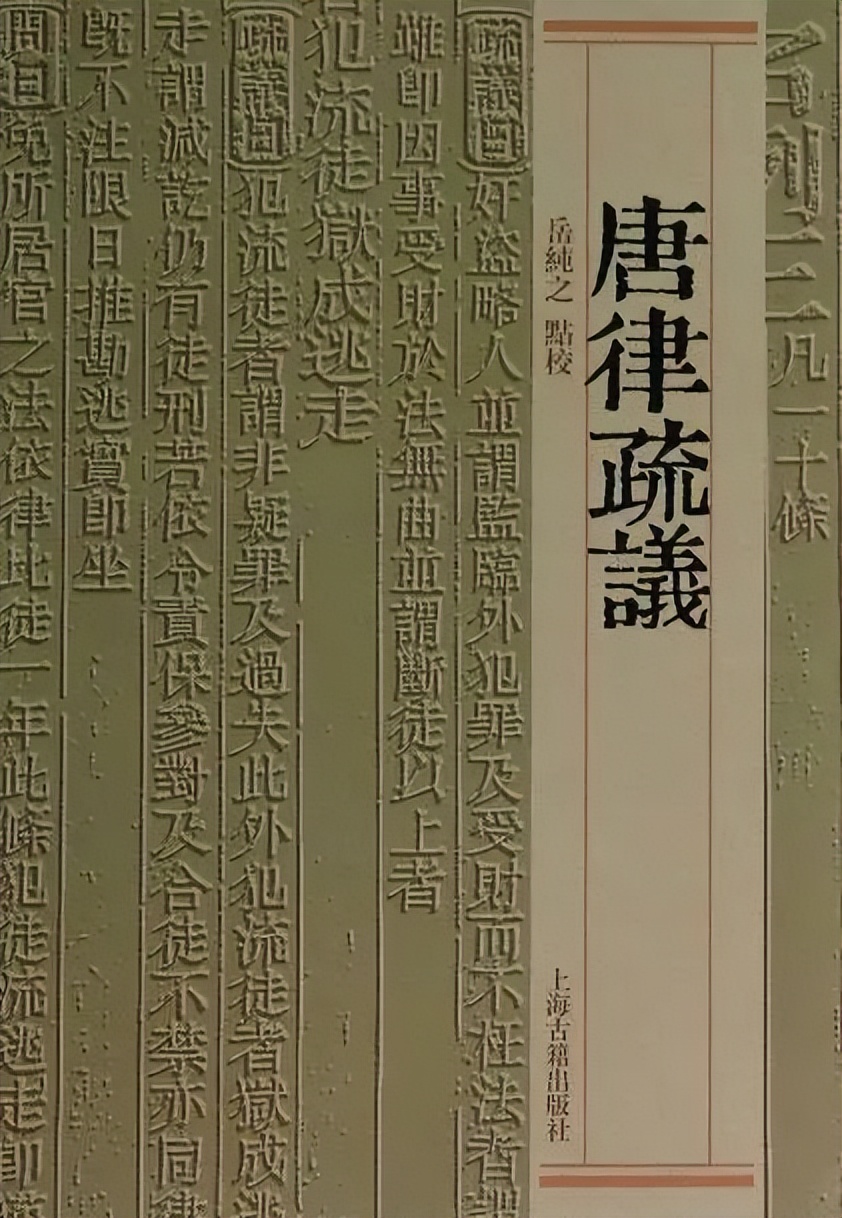 名例三 凡一十條
唐律疏議
岳純之 點校
上海古籍出版社
疏議曰奸盜略人並謂監臨外犯罪及受財而不枉法者謂
雖即因事受財於法無曲並謂斷徒以上者
犯流徒獄成逃走
疏議曰犯流徒者謂非疑罪及過失此外犯流徒者獄成逃
走謂減訖仍有徒刑若依令責保參對及合徒不禁亦同律
既不注限日推勘逃實即坐
問曰免所居官之法依律比徒一年此條犯徒流逃走即